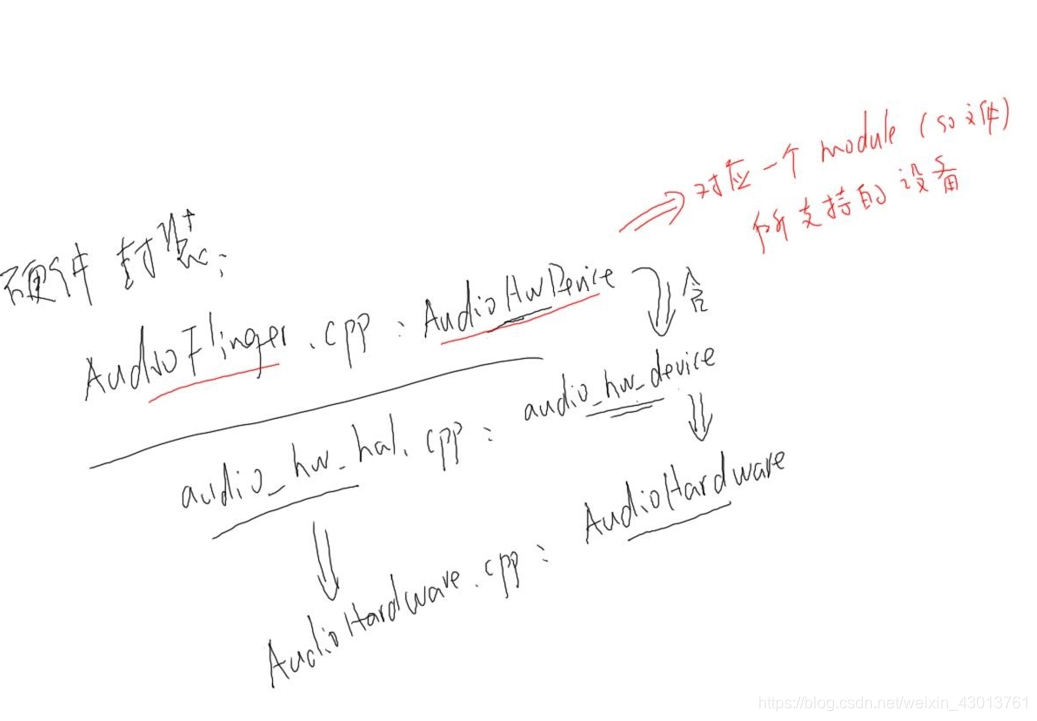 硬件封装:
AudioFlinger.cpp : AudioHwDevice
⇒ 对应一个 module (so文件)
所支持的设备
含
audio_hw_hal.cpp : audio_hw_device
AudioHardware.cpp : AudioHardware
https://blog.csdn.net/weixin_43013761